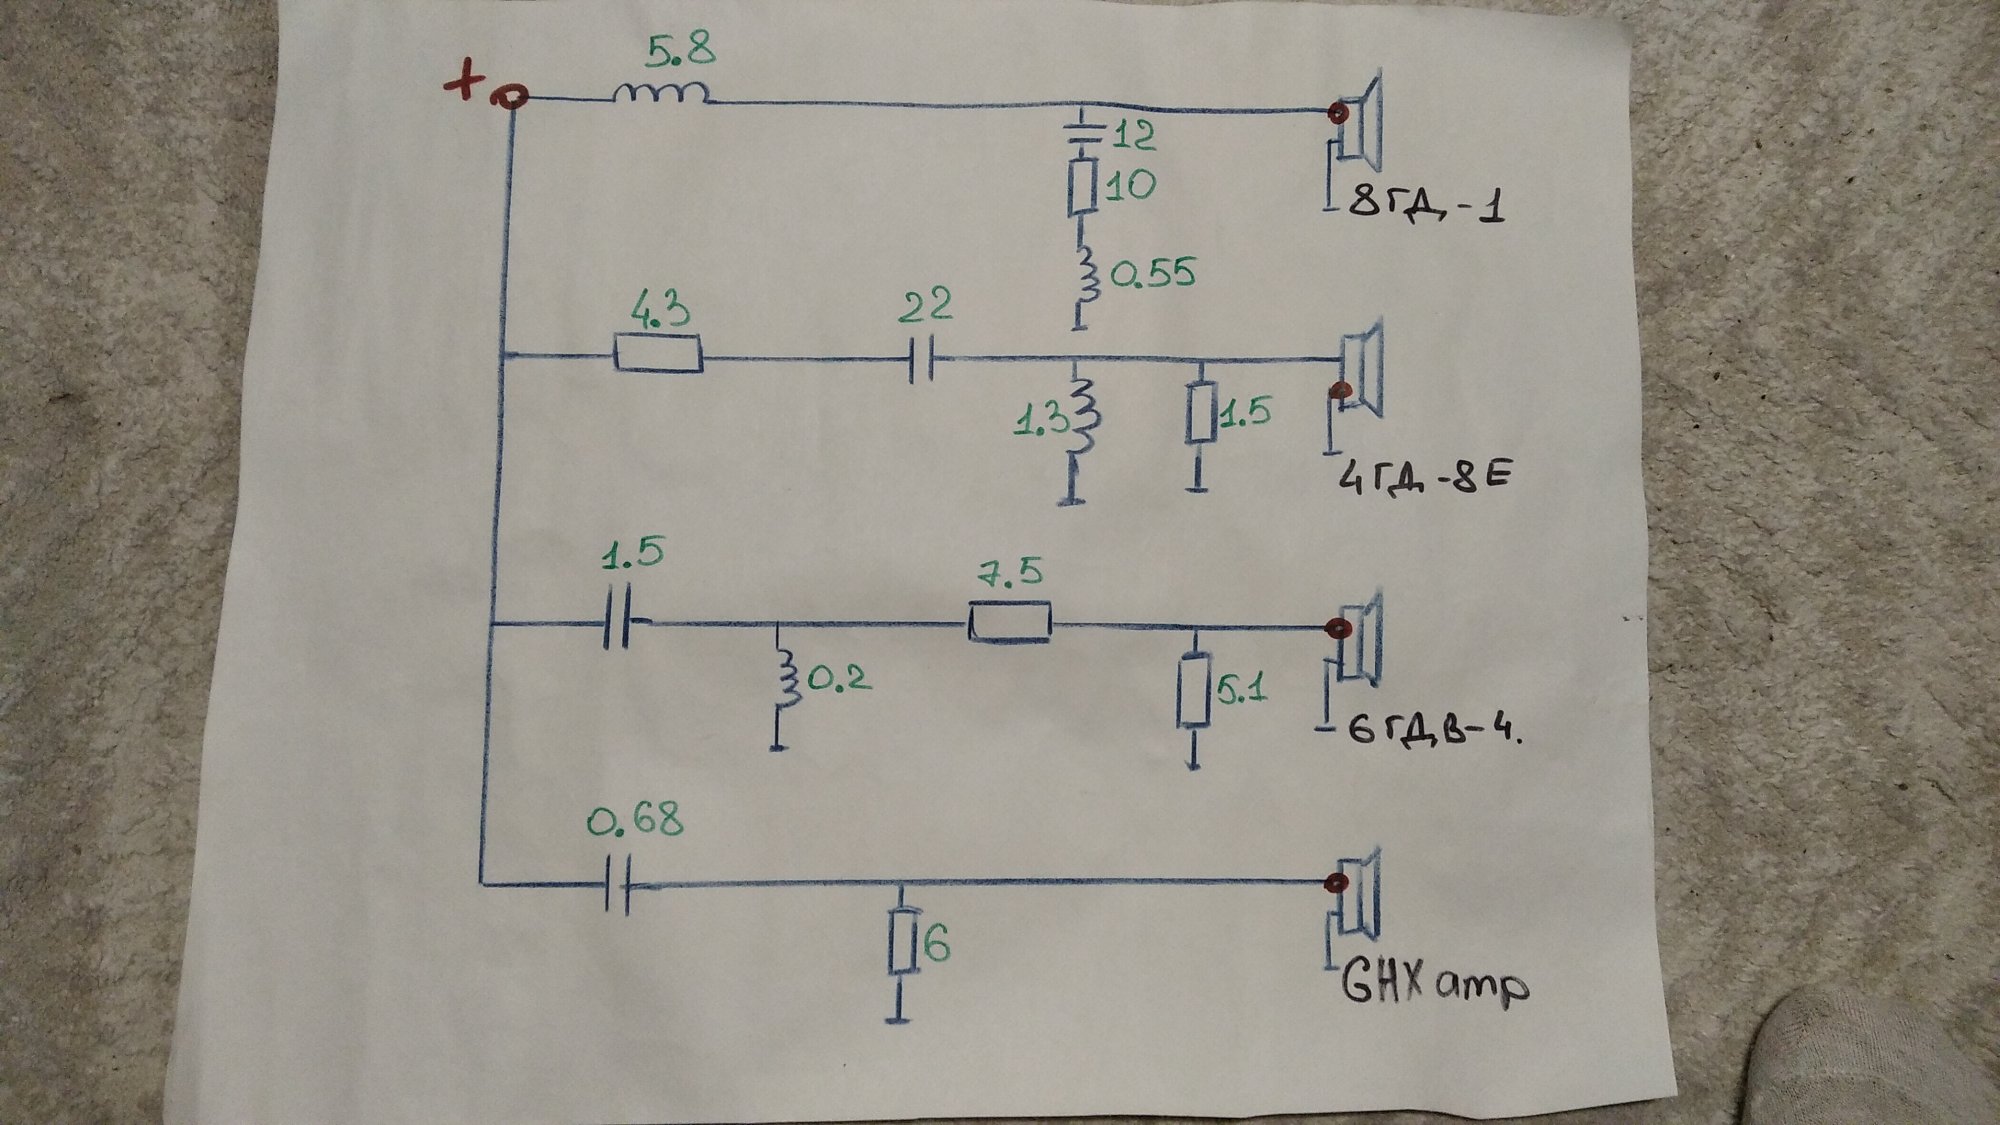 5.8
+
12
10
8ГД-1
0.55
4.3
22
1.3
1.5
4ГД-8Е
1.5
7.5
0.2
5.1
6ГДВ-4.
0.68
6
GHXamp